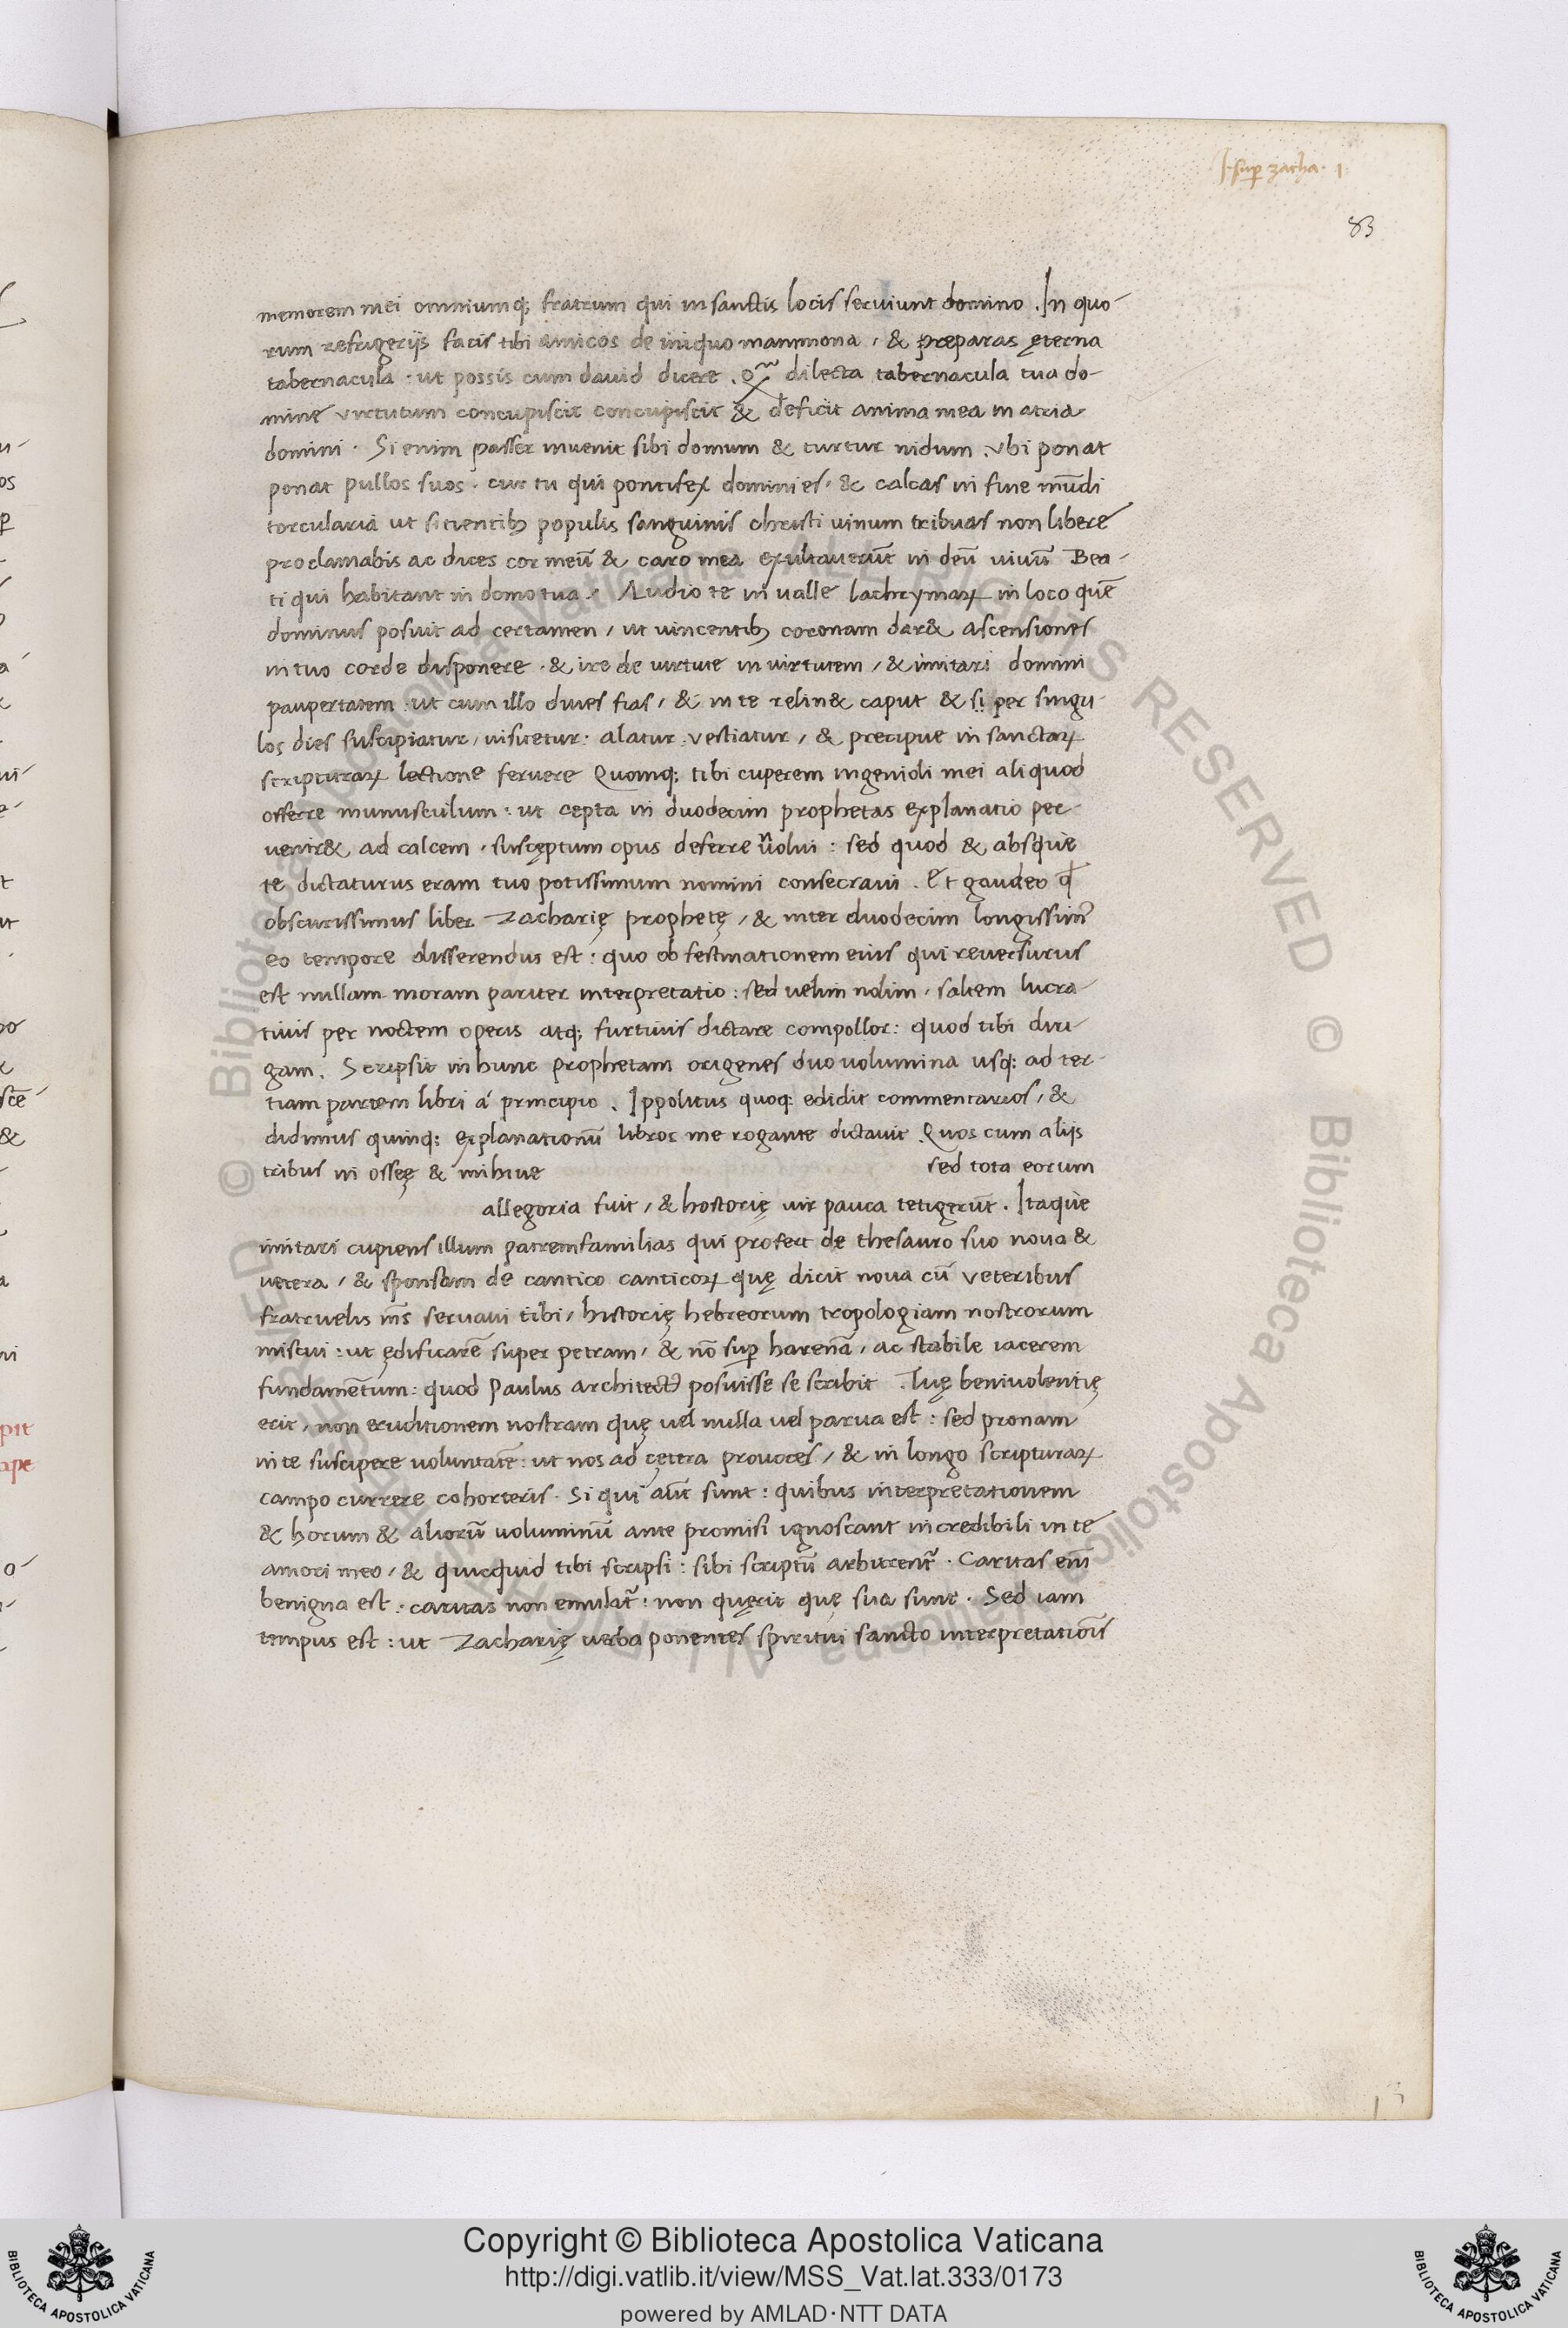 J. sup̱ zacha. 1
83
memorem mei omniumq; fratrum qui in sanctis locis seruiunt domino .In quo-
rum refrigerijs facis tibi amicos de iniquo mammona, & preparas ęterna
tabernacula . ut possis cum dauid dicere . dilecta tabernacula tua do-
mine virtutum concupiscit concupiscit & deficit anima mea in atria
domini . Si enim passer inuenit sibi domum & turtur nidum .vbi ponat
ponat pullos suos . cur tu qui pontifex domini es, & calcas in fine mūdi
torcularia ut sitientibꝫ populis sanguinis christi uinum tribuas non libere
proclamabis ac dices cor meū & caro mea exultauerūt in deū uiuū Bea-
ti qui habitant in domo tua . Audio te in ualle lachrymaꝝ in loco quē
dominus posuit ad certamen, ut uincentibꝫ coronam dar& ascensiones
in tuo corde disponere . & ire de uirtute in uirtutem, & imitari domini
paupertatem . ut cum illo diues fias, & in te relin& caput & si per singu-
los dies suscipiatur, uisitetur . alatur . vestiatur, & precipue in sanctaꝝ
scripturaꝝ lectione feruere Quomq; tibi cuperem ingenioli mei aliquod
offerre munusculum : ut cepta in duodecim prophetas explanatio per-
uenir& ad calcem . suscęptum opus deferre n̄ uolui : sed quod & absque
te dictaturus eram tuo potissimum nomini consecraui . Et gaudeo ꝙ
obscurissimus liber Zacharię prophetę, & inter duodecim longissimꝰ
eo tempore disserendus est : quo ob festinationem eius qui reuersurus
est nullam moram pariter interpretatio : sed uelim nolim, saltem lucra-
tiuis per noctem operis atq; furtiuis dictare compollor : quod tibi diri-
gam . Scripsit in hunc prophetam origenes duo uolumina usq; ad ter-
tiam partem libri á principio . Ippolitus quoq; edidit commentarios, &
didimus quinq; explanationū libros me rogante dictauit Quos cum alijs
tribus in ossęę & mihiue sed tota eorum
allegoria fuit, & hostorię uix pauca tetigerūt . Itaque
imitari cupiens illum patremfamilias qui profert de thesauro suo noua &
uetera, & sponsam de cantico canticoꝝ quę dicit noua cū veteribus
fratruelis m̄s seruaui tibi, historię hebreorum tropologiam nostrorum
miscui : ut ędificarē super petram, & nō sup̱ harenā, ac stabile iacerem
fundamētum : quod Paulus architectꝰ posuisse se scribit . Tuę beniuolentię
erit, non eruditionem nostram quę uel nulla uel parua est : sed pronam
in te suscipere uoluntatē : ut nos ad cętera prouoces, & in longo scripturaꝝ
campo currere cohorteris . Si qui aūt sunt : quibus interpretationem
& horum & aliorū uoluminū ante promisi ignoscant incredibili in te
amori meo, & quicquid tibi scripsi : sibi scriptū arbitrent̄ . Caritas eni̅
benigna est : caritas non emulat̄ : non quęrit quę sua sunt . Sed iam
tempus est : ut Zacharię uerba ponentes spiritui sancto interpretatiōis
Copyright © Biblioteca Apostolica Vaticana
http://digi.vatlib.it/view/MSS_Vat.lat.333/0173
powered by AMLAD·NTT DATA